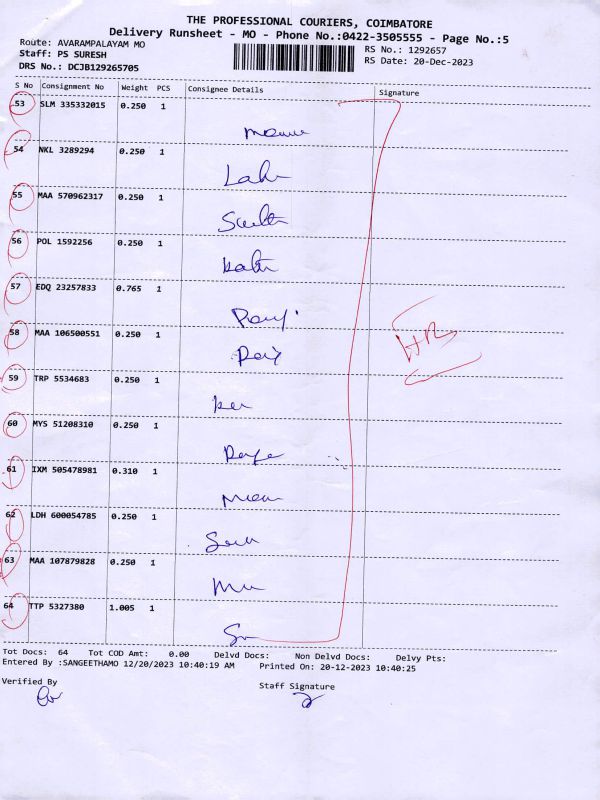 THE PROFESSIONAL COURIERS, COIMBATORE
Delivery Runsheet - MO - Phone No.:0422-3505555 - Page No.:5
Route: AVARAMPALAYAM MO
RS No.: 1292657
Staff: PS SURESH
RS Date: 20-Dec-2023
DRS No.: DCJB129265705
S No Consignment No Weight PCS Consignee Details Signature
53 SLM 335332015 0.250 1
54 NKL 3289294 0.250 1
55 MAA 570962317 0.250 1
56 POL 1592256 0.250 1
57 EDQ 23257833 0.765 1
58 MAA 106500551 0.250 1
59 TRP 5534683 0.250 1
60 MYS 51208310 0.250 1
61 IXM 505478981 0.310 1
62 LDH 600054785 0.250 1
63 MAA 107879828 0.250 1
64 TTP 5327380 1.005 1
Tot Docs: 64 Tot COD Amt: 0.00 Delvd Docs: Non Delvd Docs: Delvy Pts:
Entered By :SANGEETHAMO 12/20/2023 10:40:19 AM Printed On: 20-12-2023 10:40:25
Verified By
Staff Signature